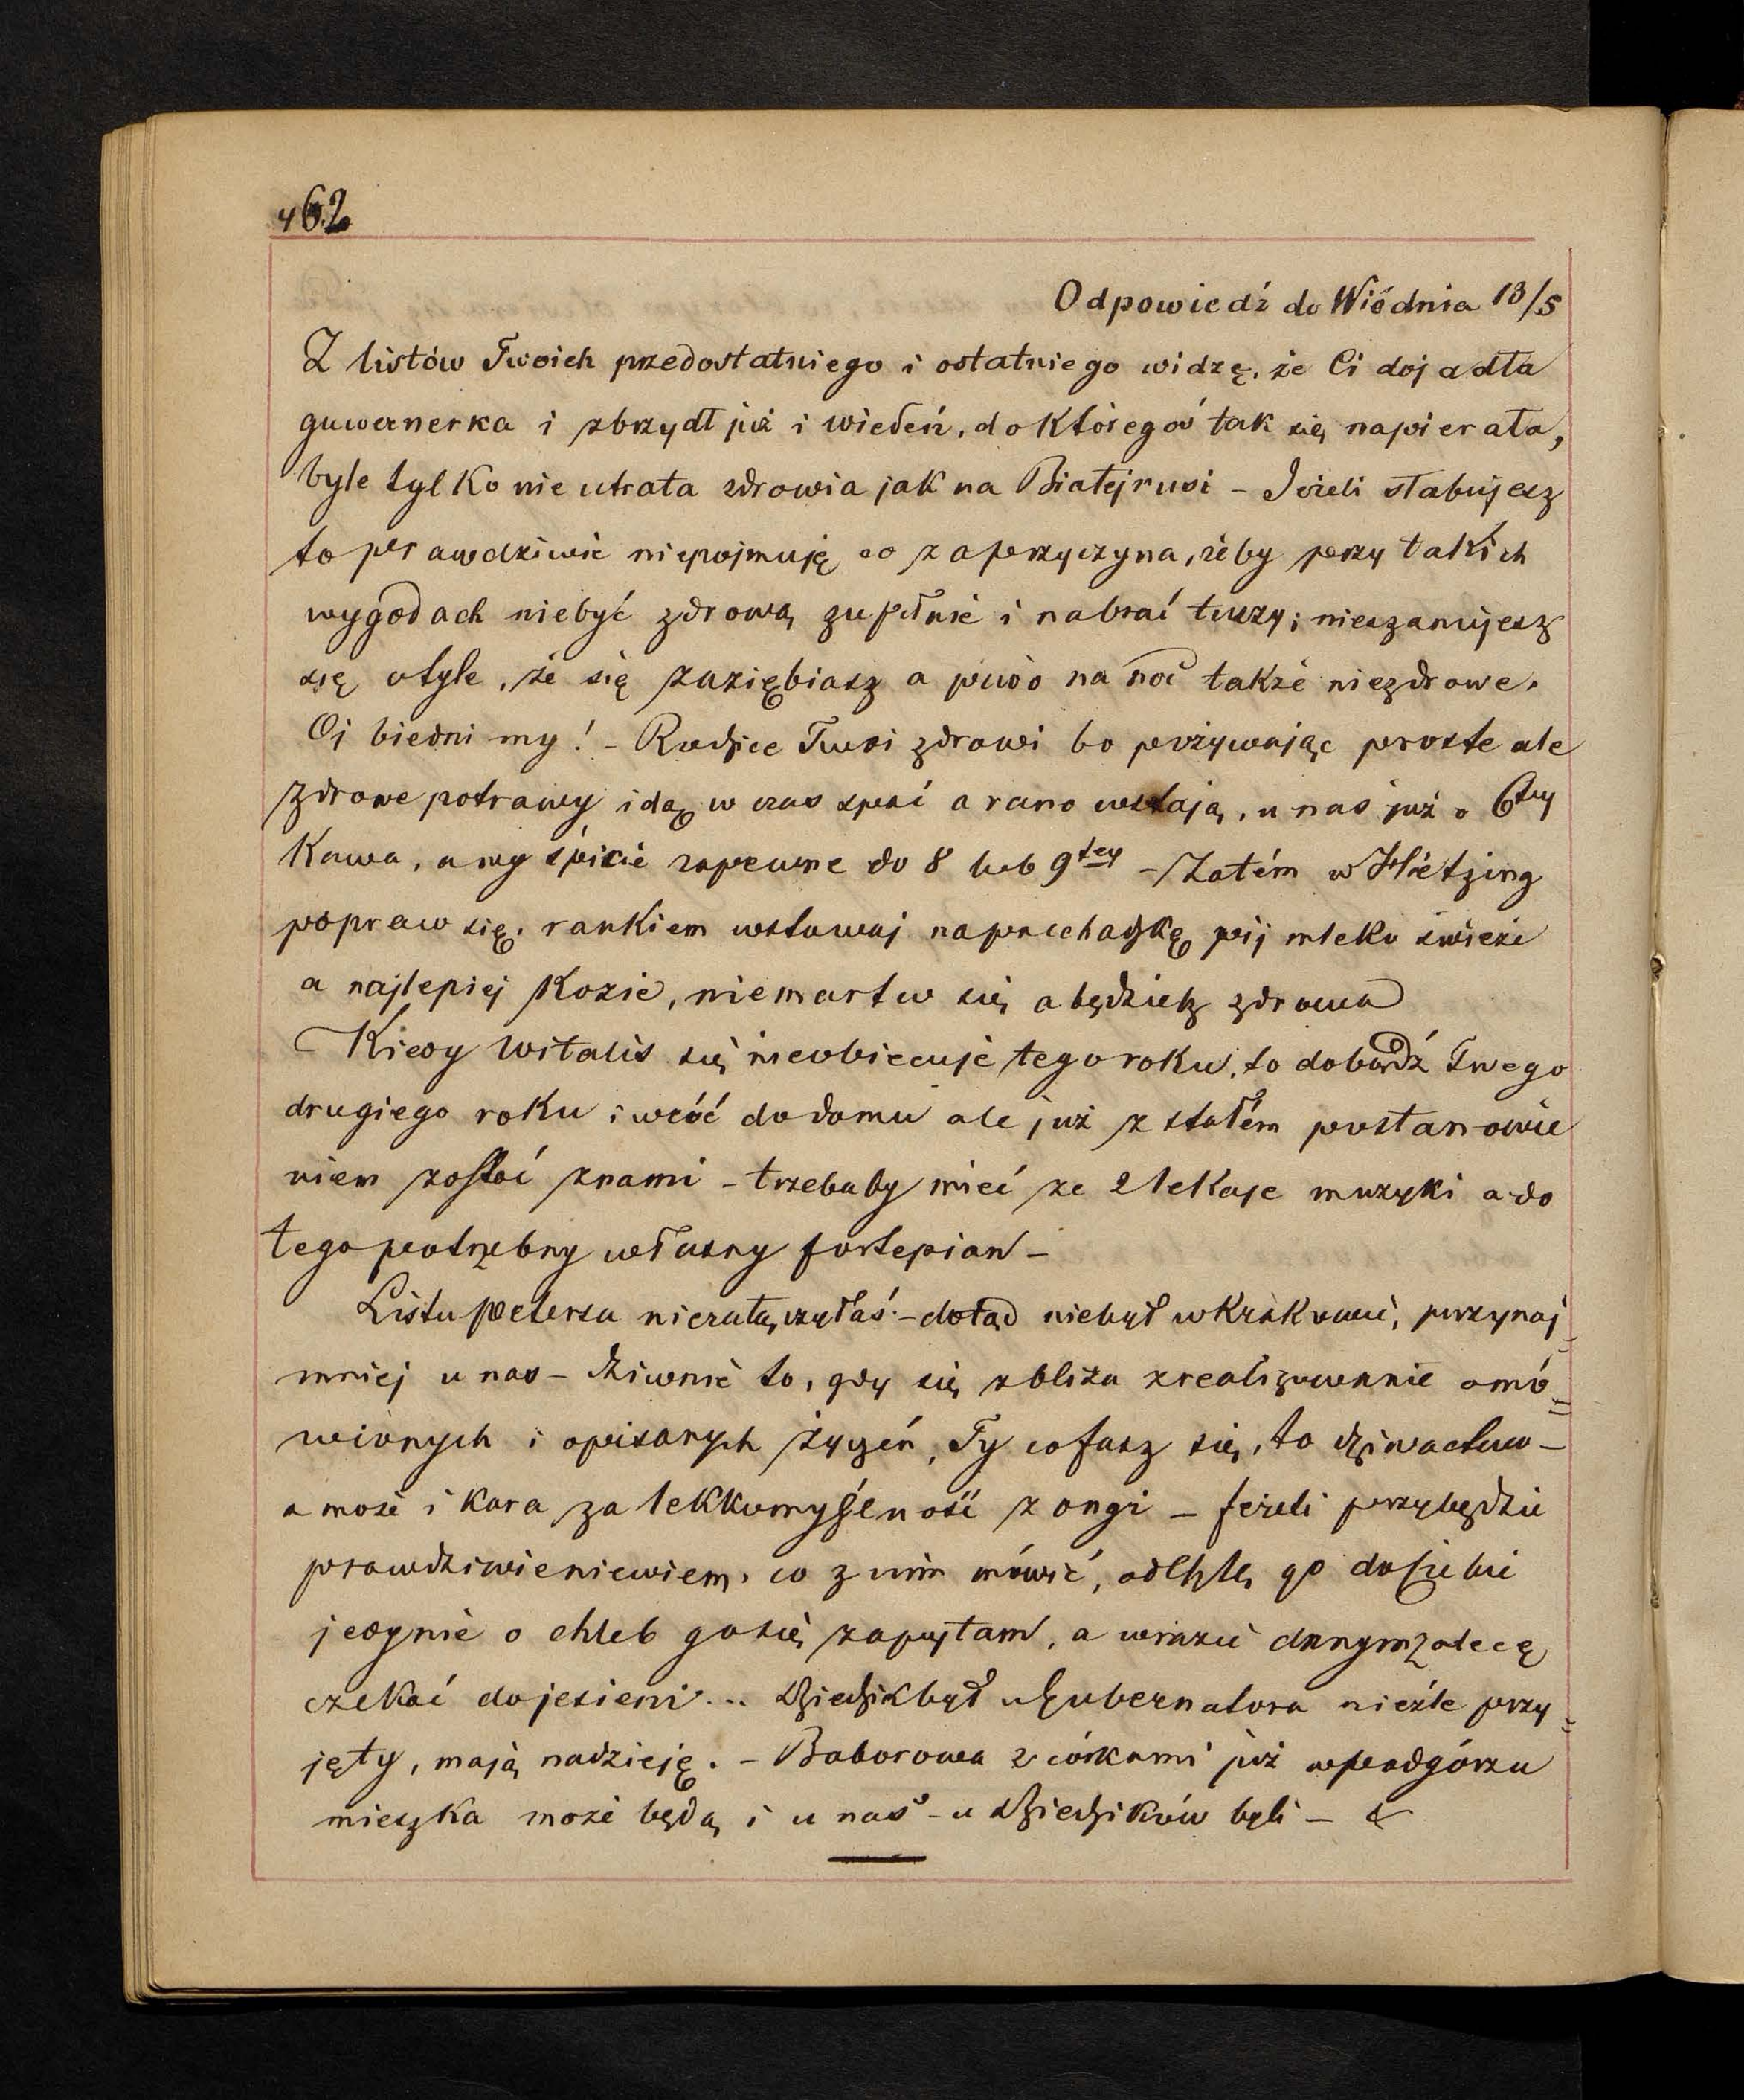 462
Odpowiedź do Wiédnia 13/5
Z listów Twoich przedostatniego i ostatniego widzę, że Ci dojadła
guwernerka i zbrzydł już i wiedeń, do któregoś tak się napierała,
byle tylko nie utrata zdrowia jak na Białejrusi – Jeżeli słabujesz
to prawdziwie niepojmuję co za przyczyna, żeby przy takich
wygodach niebyć zdrową zupełnie i nabrać tuszy; nieszanujesz
się otyle, że się zaziębiasz a piwo na noc także niezdrowe.
Oj biedni my! – Rodzice Twoi zdrowi bo pożywając proste ale
zdrowe potrawy idą w czas spać a rano wstają, u nas już o 6tej
Kawa, a wy śpicie zapewne do 8 lub 9tej – Zatém w Hietzing
popraw się, rankiem wstawaj na przechadzkę pij mleko świeże
a najlepiej Kozie, niemartw się a będziesz zdrowa
Kiedy Witalis się nieobiecuje tego roku, to dobądź Twego
drugiego roku i wróć do domu ale już z stałém postanowie
niem zostać znami – trzebaby mieć ze 2 lekcje muzyki a do
tego potrzebny własny fortepian –
Listu Petersa niezałączyłaś. – dotąd niebył w Krakowie, przynaj=
mniej u nas – dziwnie to, gdy się zbliża zrealizowanie omó=
wionych i opisanych życzeń, Ty cofasz się, to dziwactwo –
a może i kara za lekkomyślność z ongi – jeżeli przybędzie
prawdziwieniewiem, co z nim mówić, odeszlę go do siebie
jedynie o chleb gosię zapytam, a wrazie danym zalecę
czekać do jesieni ... Dziedzik był u Gubernatora nieźle przy=
jęty, mają nadzieję. – Boborowa z córkami już w Podgórzu
mieszka może będą i u nas – u Dziedzików byli –